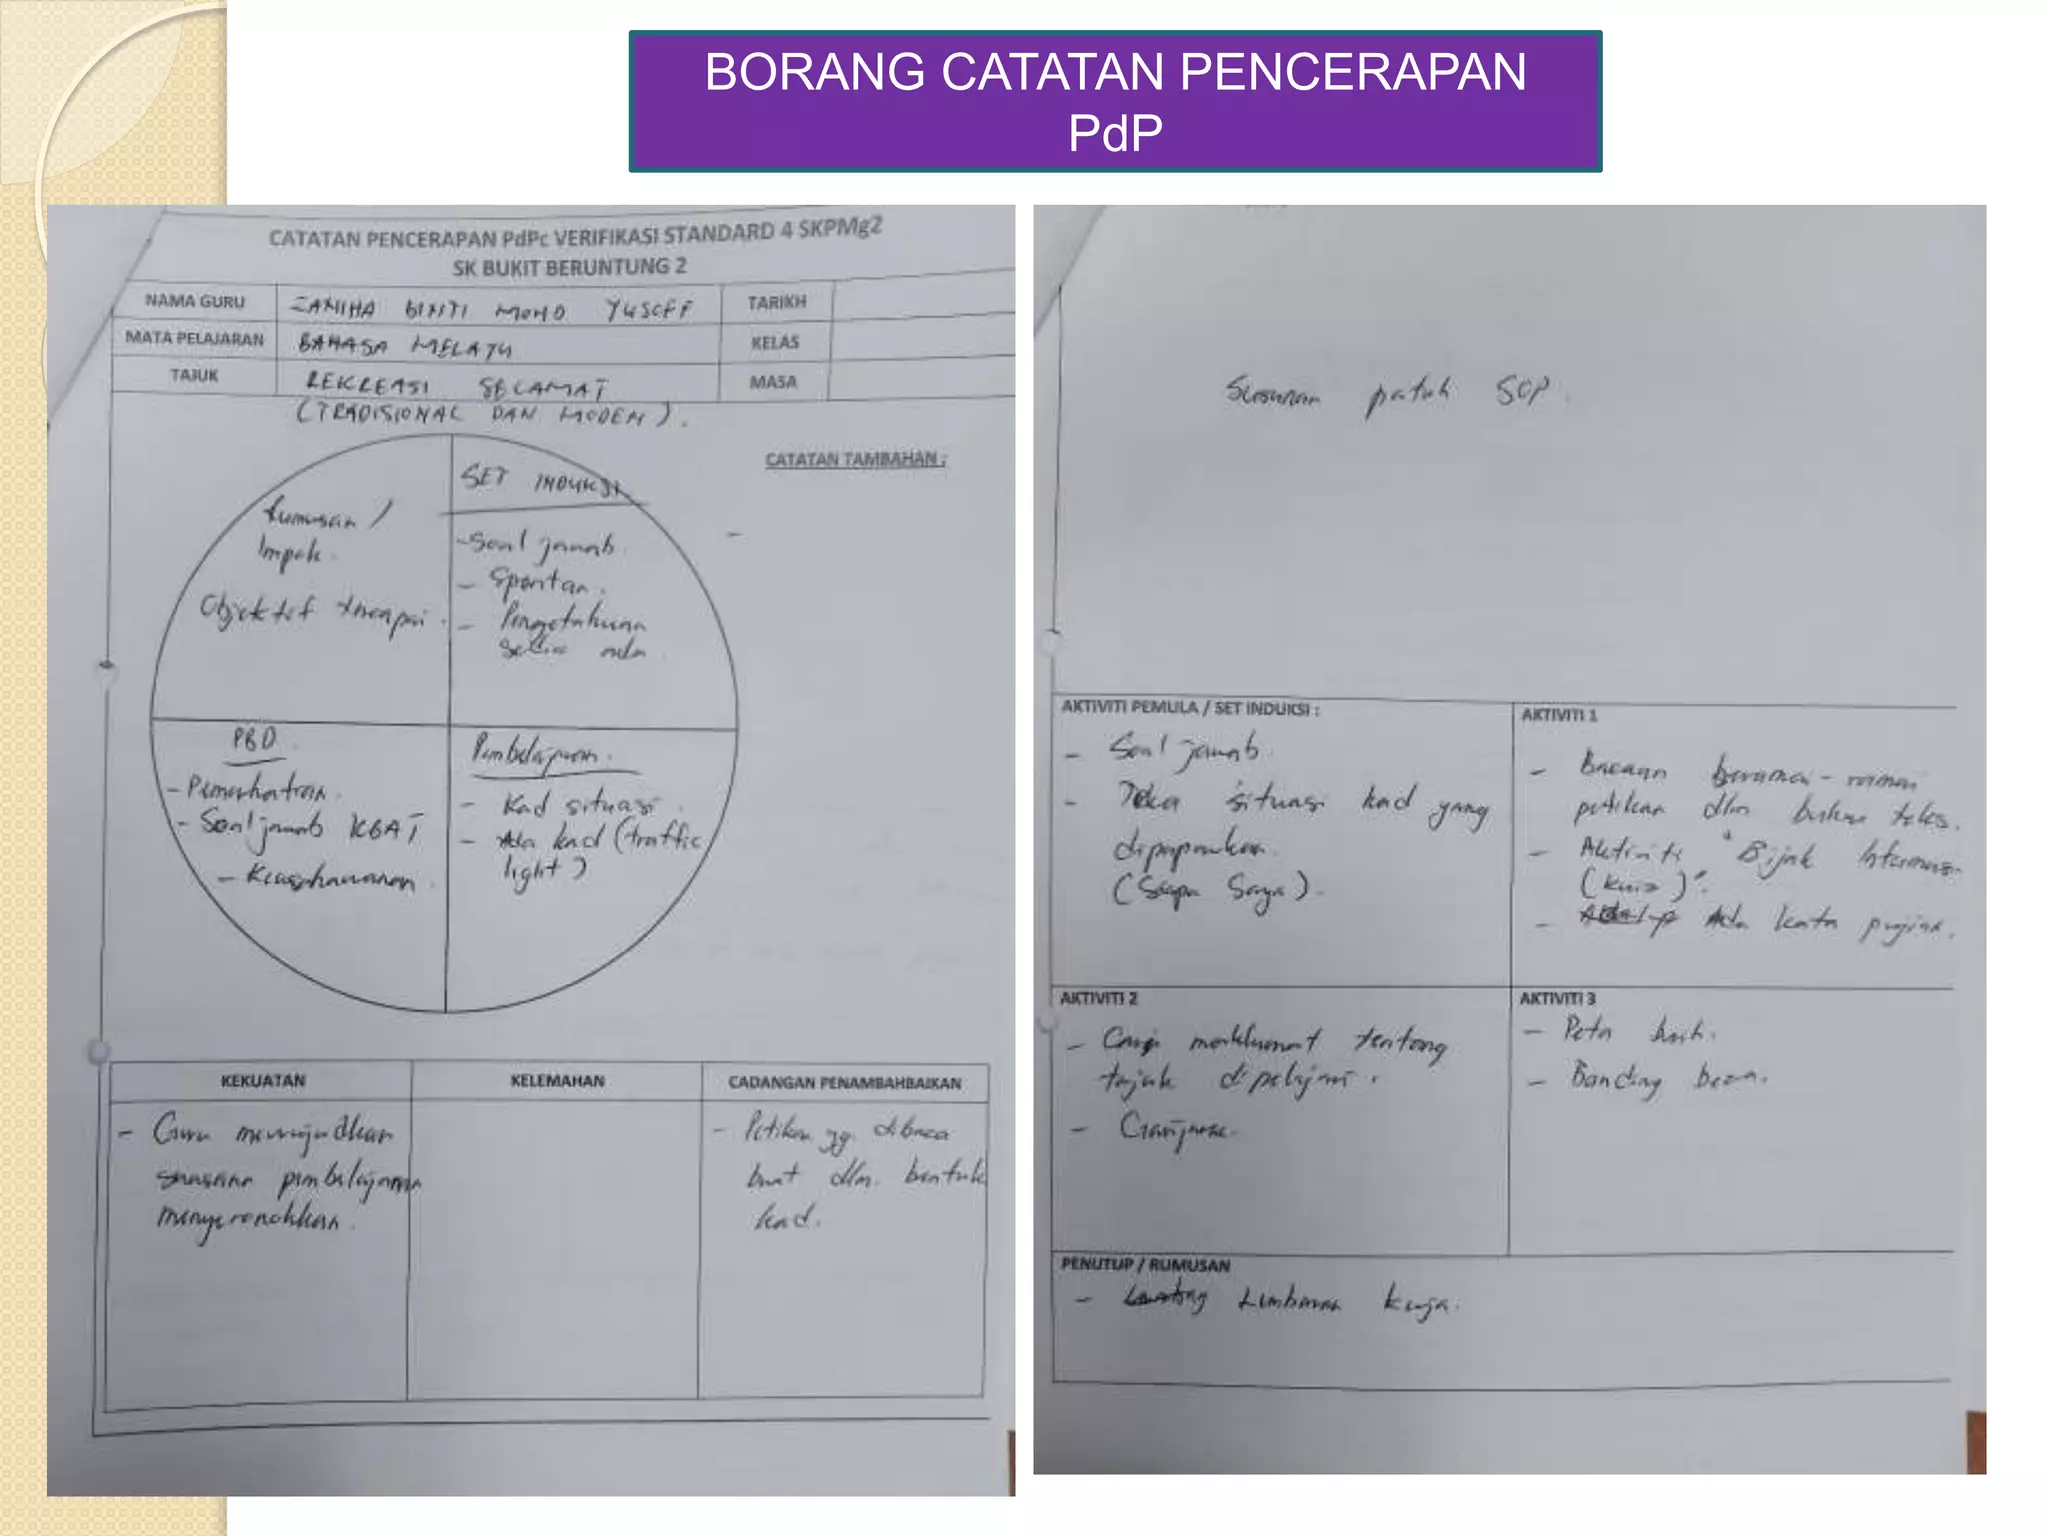 BORANG CATATAN PENCERAPAN
PdP
CATATAN PENCERAPAN PdPc VERIFIKASI STANDARD 4 SKPMg2
SK BUKIT BERUNTUNG 2
NAMA GURU ZANIHA BINTI MOHD YUSOFF TARIKH
MATA PELAJARAN BAHASA MELAYU KELAS
TAJUK REKREASI SELAMAT MASA
(TRADISIONAL DAN MODEN).
CATATAN TAMBAHAN :
-
Rumusan /
Impak.
Objektif tercapai.
SET INDUKSI
- Soal jawab.
- Spontan.
- Pengetahuan
sedia ada.
PBD
- Pemerhatian.
- Soal jawab KBAT
Pembelajaran.
- Kad situasi.
- Ada kad (traffic
light)
KEKUATAN
- Guru mewujudkan
suasana pembelajaran
menyeronokkan.
KELEMAHAN
CADANGAN PENAMBAHBAIKAN
- Petikan yg. dibaca
buat dlm. bentuk
kad.
Susunan patuh SOP.
AKTIVITI PEMULA / SET INDUKSI :
- Soal jawab.
- Teka situasi kad yang
dipaparkan.
(Siapa Saya).
AKTIVITI 1
- Bacaan beramai-ramai
petikan dlm buku teks.
- Aktiviti "Bijak
(Kuiz)".
- Ada kata pujian.
AKTIVITI 2
- Cari maklumat tentang
tajuk dipelajari.
-
AKTIVITI 3
- Peta buih.
- Banding beza.
PENUTUP / RUMUSAN
- Lembaran kerja.